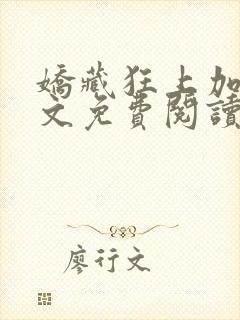 嬌藏狂上加
文免費閱讀
廖行文